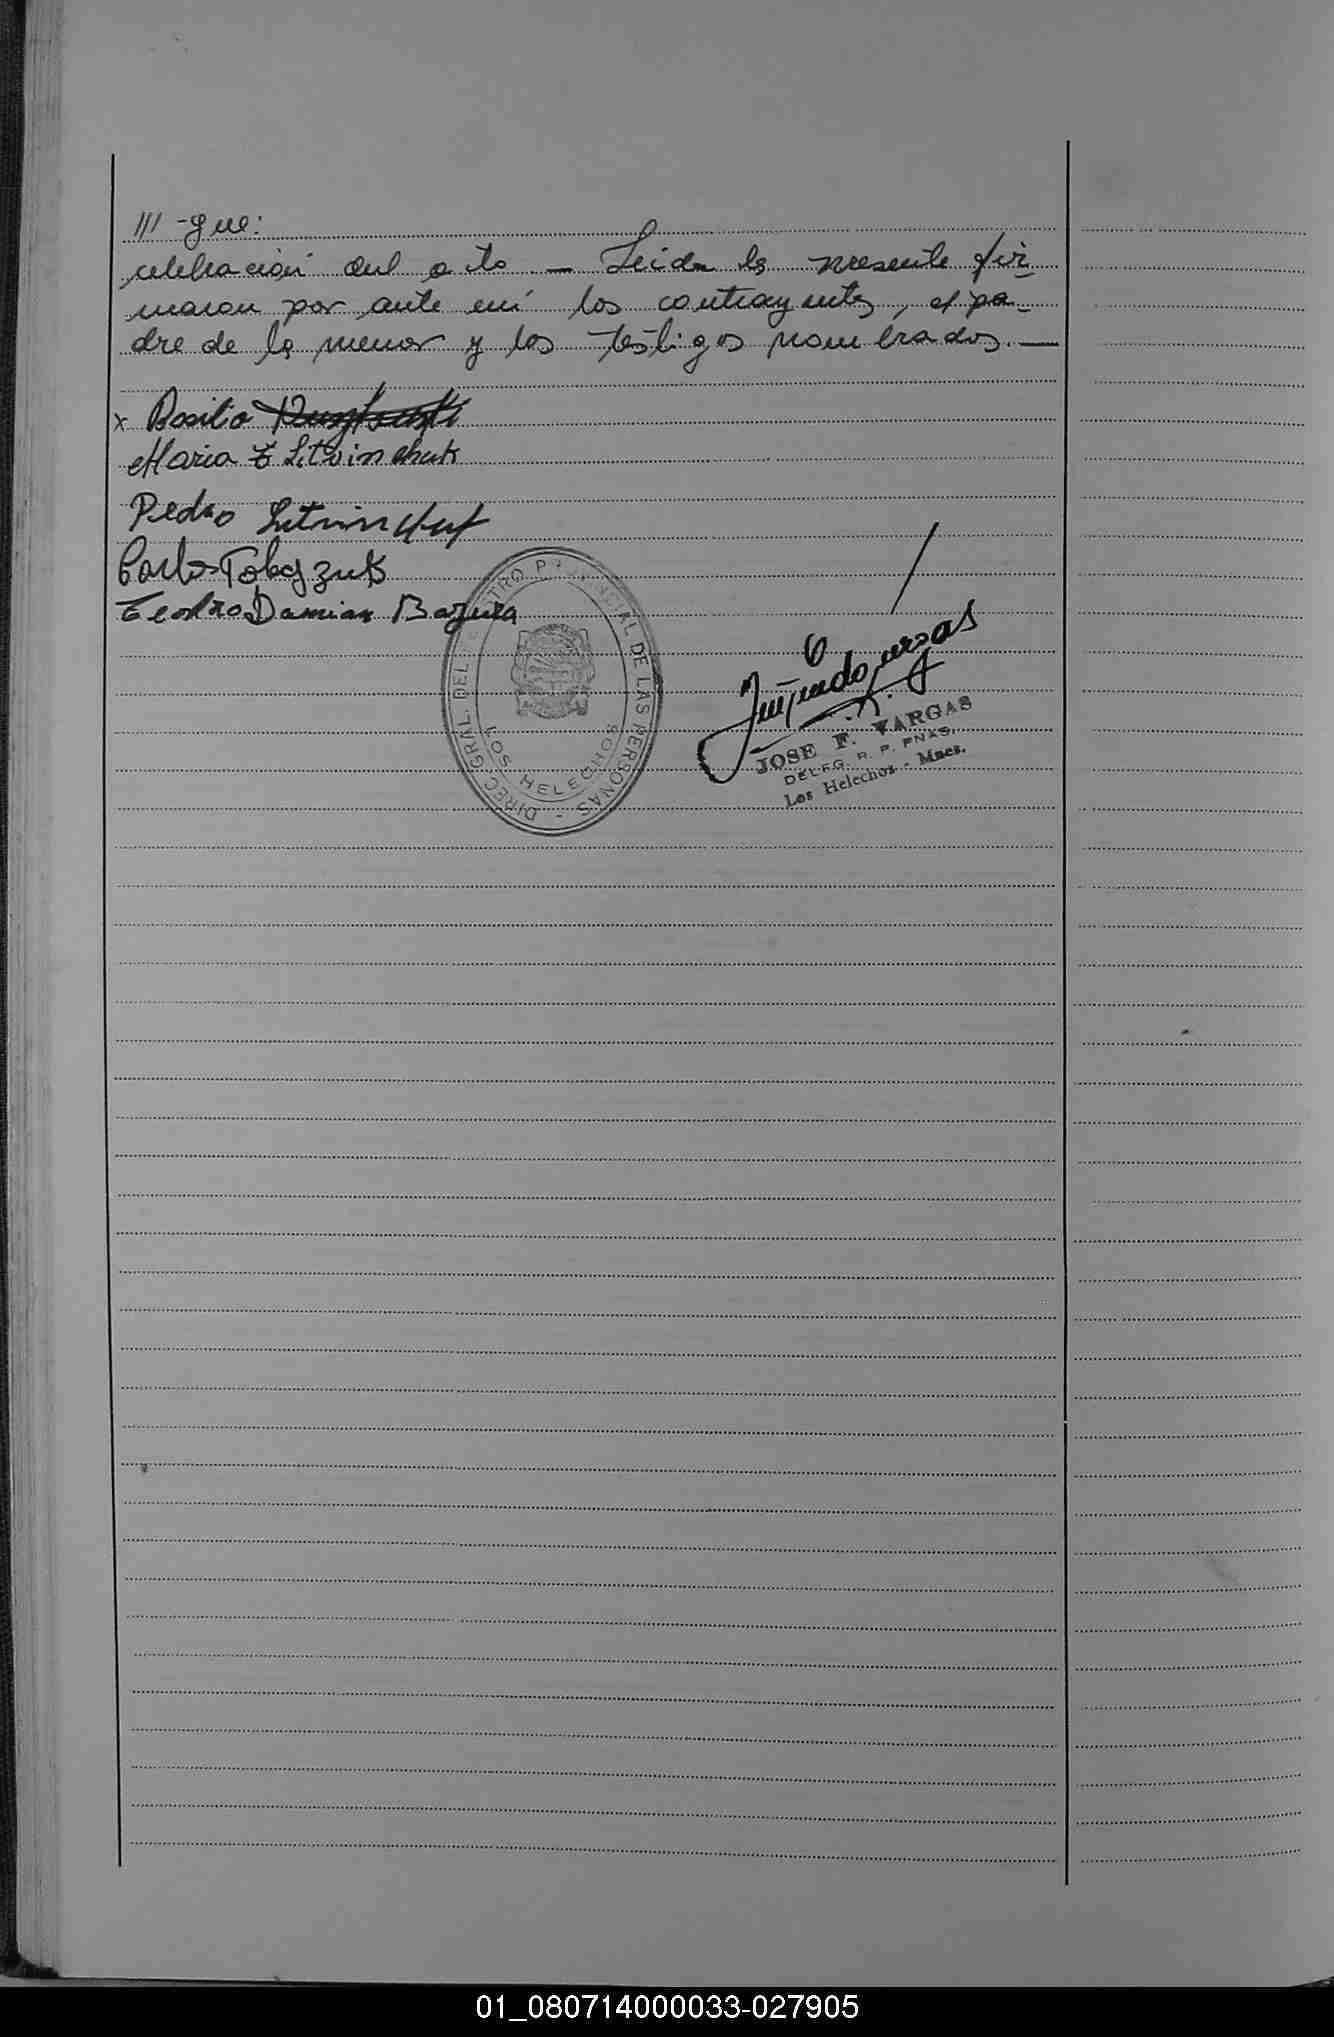 /// -gue:
celebración del acto — Leida la presente fir-
maron por ante mí los contrayentes, el pa-
dre de la menor y los testigos nombrados. —
x Basilio
Maria E Litvinchuk
Pedro Litvinchuk
Carlos Tobaszuk
Teodoro Damian Bazura
DIREC. GRAL. DEL REGISTRO PROVINCIAL DE LAS PERSONAS -
LOS HELECHOS
JOSE F. VARGAS
DELEG. R. P. PNAS.
Los Helechos - Mnes.
01_080714000033-027905